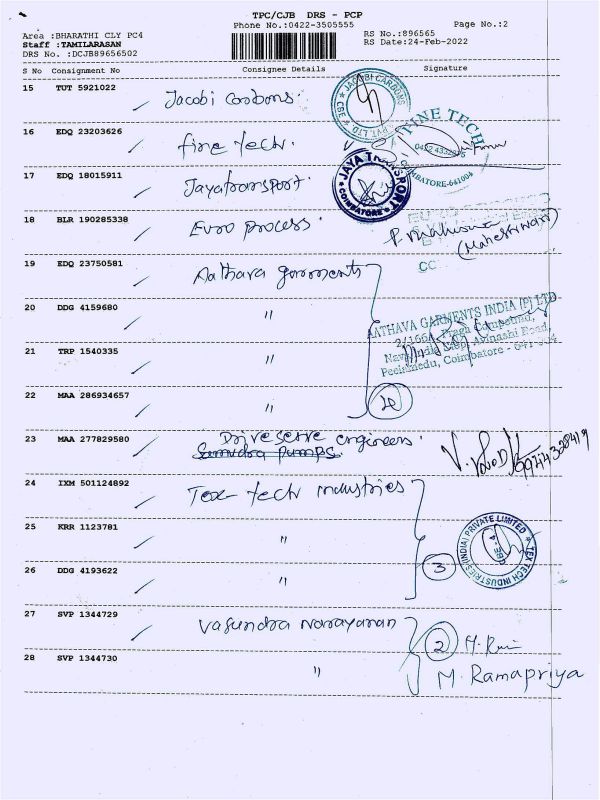 TPC/CJB DRS - PCP
Phone No.:0422-3505555
Page No.:2
Area :BHARATHI CLY PC4
Staff :TAMILARASAN
DRS No. :DCJB89656502
RS No.:896565
RS Date:24-Feb-2022
S No Consignment No Consignee Details Signature
15 TUT 5921022 Jacobi Carbons.
JACOBI CARBONS
PVT. LTD
CBE
16 EDQ 23203626 fine tech.
FINE TECH
COIMBATORE-641004
17 EDQ 18015911 Jayatransport.
JAYA TRANSPORT
COIMBATORE
18 BLR 190285338 Euro process.
EURO PROCESS
(Maheshwari)
CC
19 EDQ 23750581 Aathava garments
20 DDG 4159680 "
AATHAVA GARMENTS INDIA (P) LTD
Avinashi Road,
Peelamedu, Coimbatore - 641 004
21 TRP 1540335 "
22 MAA 286934657 "
4
23 MAA 277829580 Driveserve engineers.
Samudra pumps.
24 IXM 501124892 Tex-tech industries
25 KRR 1123781 "
TEX TECH INDUSTRIES (INDIA) PRIVATE LIMITED
CBE - 4
26 DDG 4193622 "
3
27 SVP 1344729 Vasundra Narayanan
2
28 SVP 1344730 "
M. Ramapriya